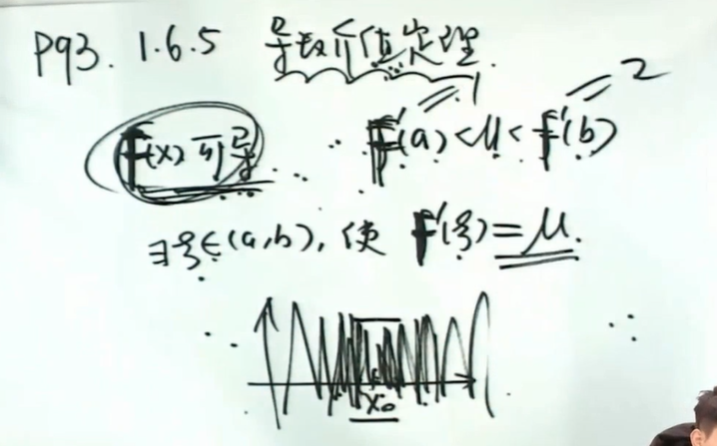 P93. 1.6.5 导数介值定理.
F(x) 可导 ∴ F'(a)<μ<F'(b)
1 2
∃ξ∈(a,b), 使 F'(ξ)=μ.
x₀